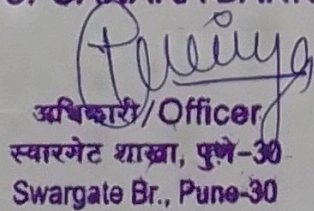 अधिकारी/Officer
स्वारगेट शाखा, पुणे-30
Swargate Br., Pune-30